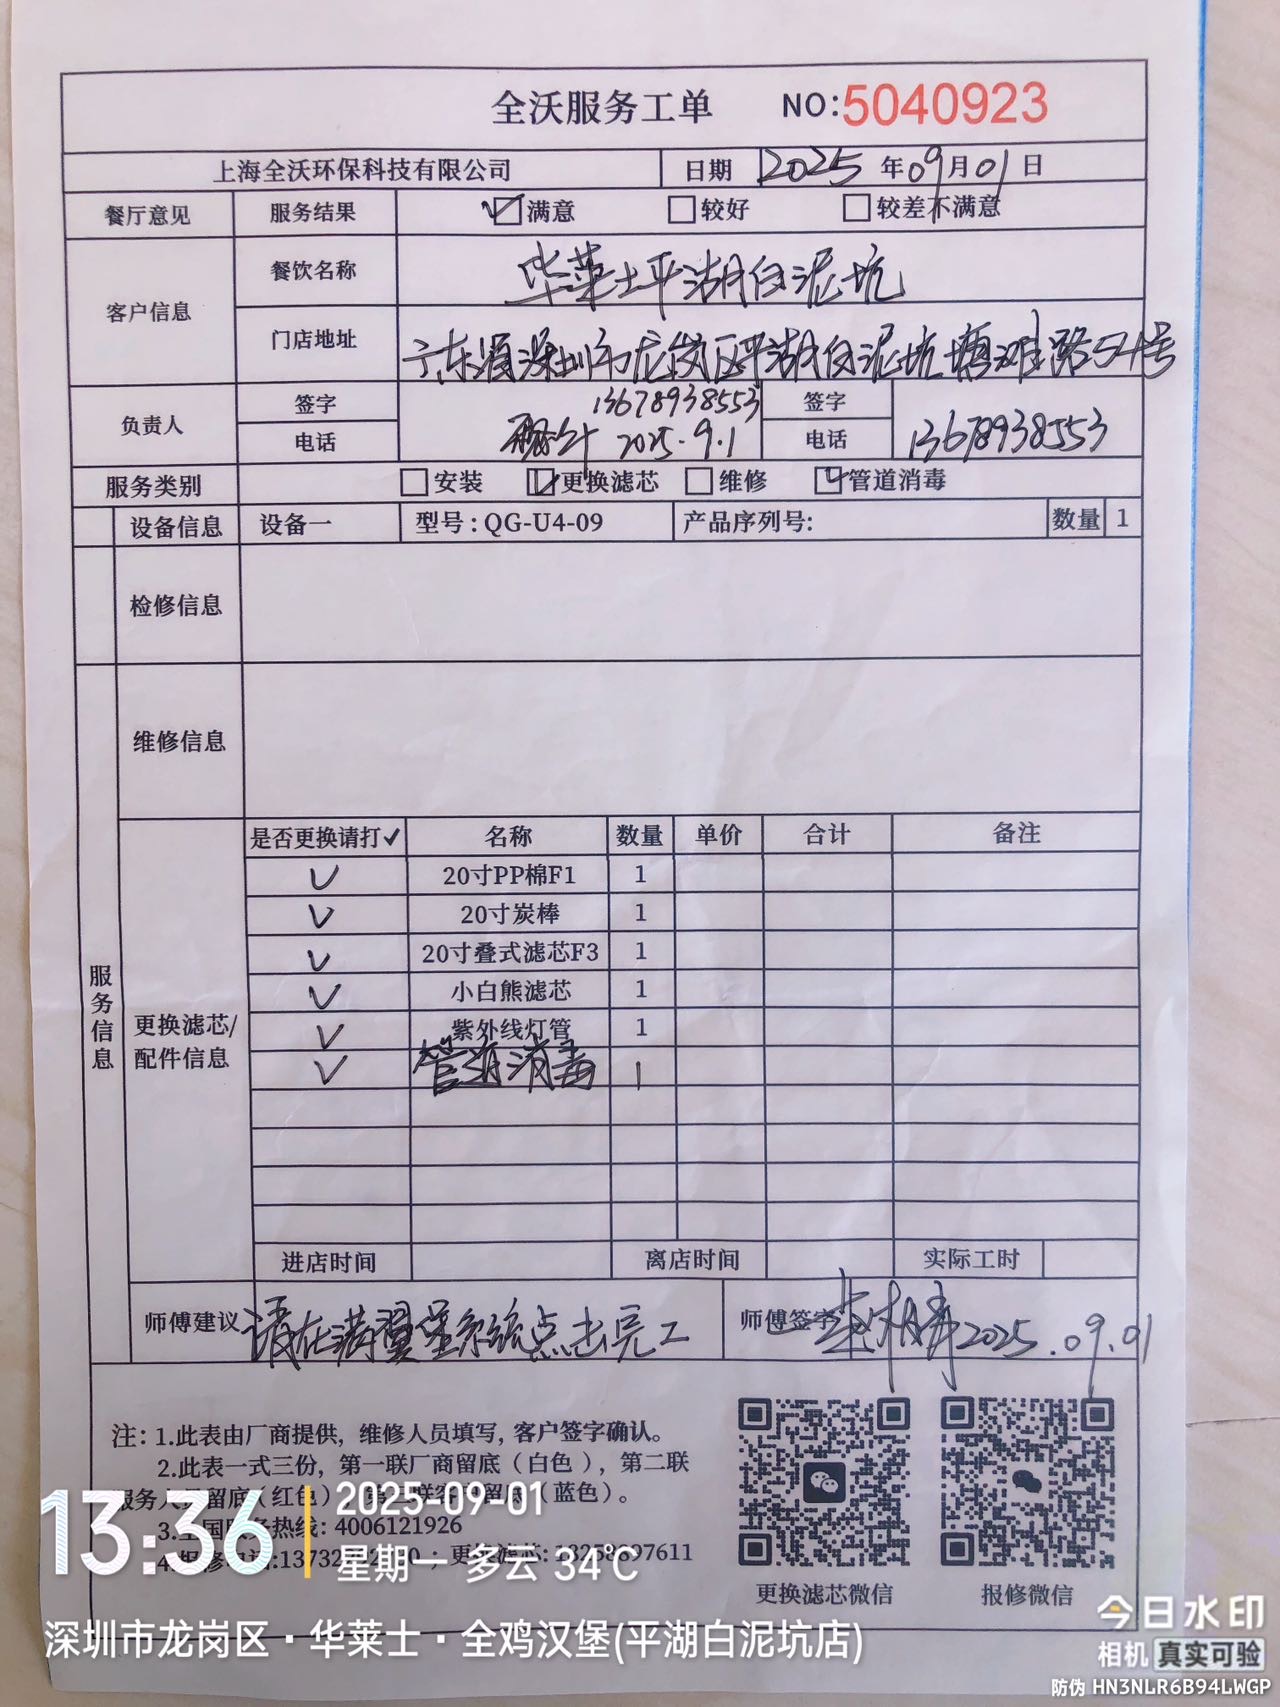 全沃服务工单 NO:5040923
上海全沃环保科技有限公司 日期 2025年09月01日
餐厅意见 服务结果 满意 较好 较差不满意
客户信息 餐饮名称 华莱士平湖白泥坑
门店地址 广东省深圳市龙岗区平湖白泥坑塘滩路54号
负责人 签字 13678938553 签字
电话 2025.9.1 电话 13678938553
服务类别 安装 更换滤芯 维修 管道消毒
设备信息 设备一 型号:QG-U4-09 产品序列号: 数量 1
检修信息
维修信息
服务信息
更换滤芯/
配件信息
是否更换请打✓ 名称 数量 单价 合计 备注
✓ 20寸PP棉F1 1
✓ 20寸炭棒 1
✓ 20寸叠式滤芯F3 1
✓ 小白熊滤芯 1
✓ 紫外线灯管 1
✓ 管道消毒 1
进店时间 离店时间 实际工时
师傅建议 请在满翼堡系统点击完工 师傅签字 2025.09.01
注:1.此表由厂商提供,维修人员填写,客户签字确认。
2.此表一式三份,第一联厂商留底(白色),第二联
服务人员留底(红色) 留底(蓝色)。
3.全国服务热线:4006121926
4.报修 :13732 ;更换滤芯: 8258897611
更换滤芯微信 报修微信
13:36 2025-09-01
星期一 多云 34℃
深圳市龙岗区·华莱士·全鸡汉堡(平湖白泥坑店)
今日水印
相机 真实可验
防伪 HN3NLR6B94LWGP